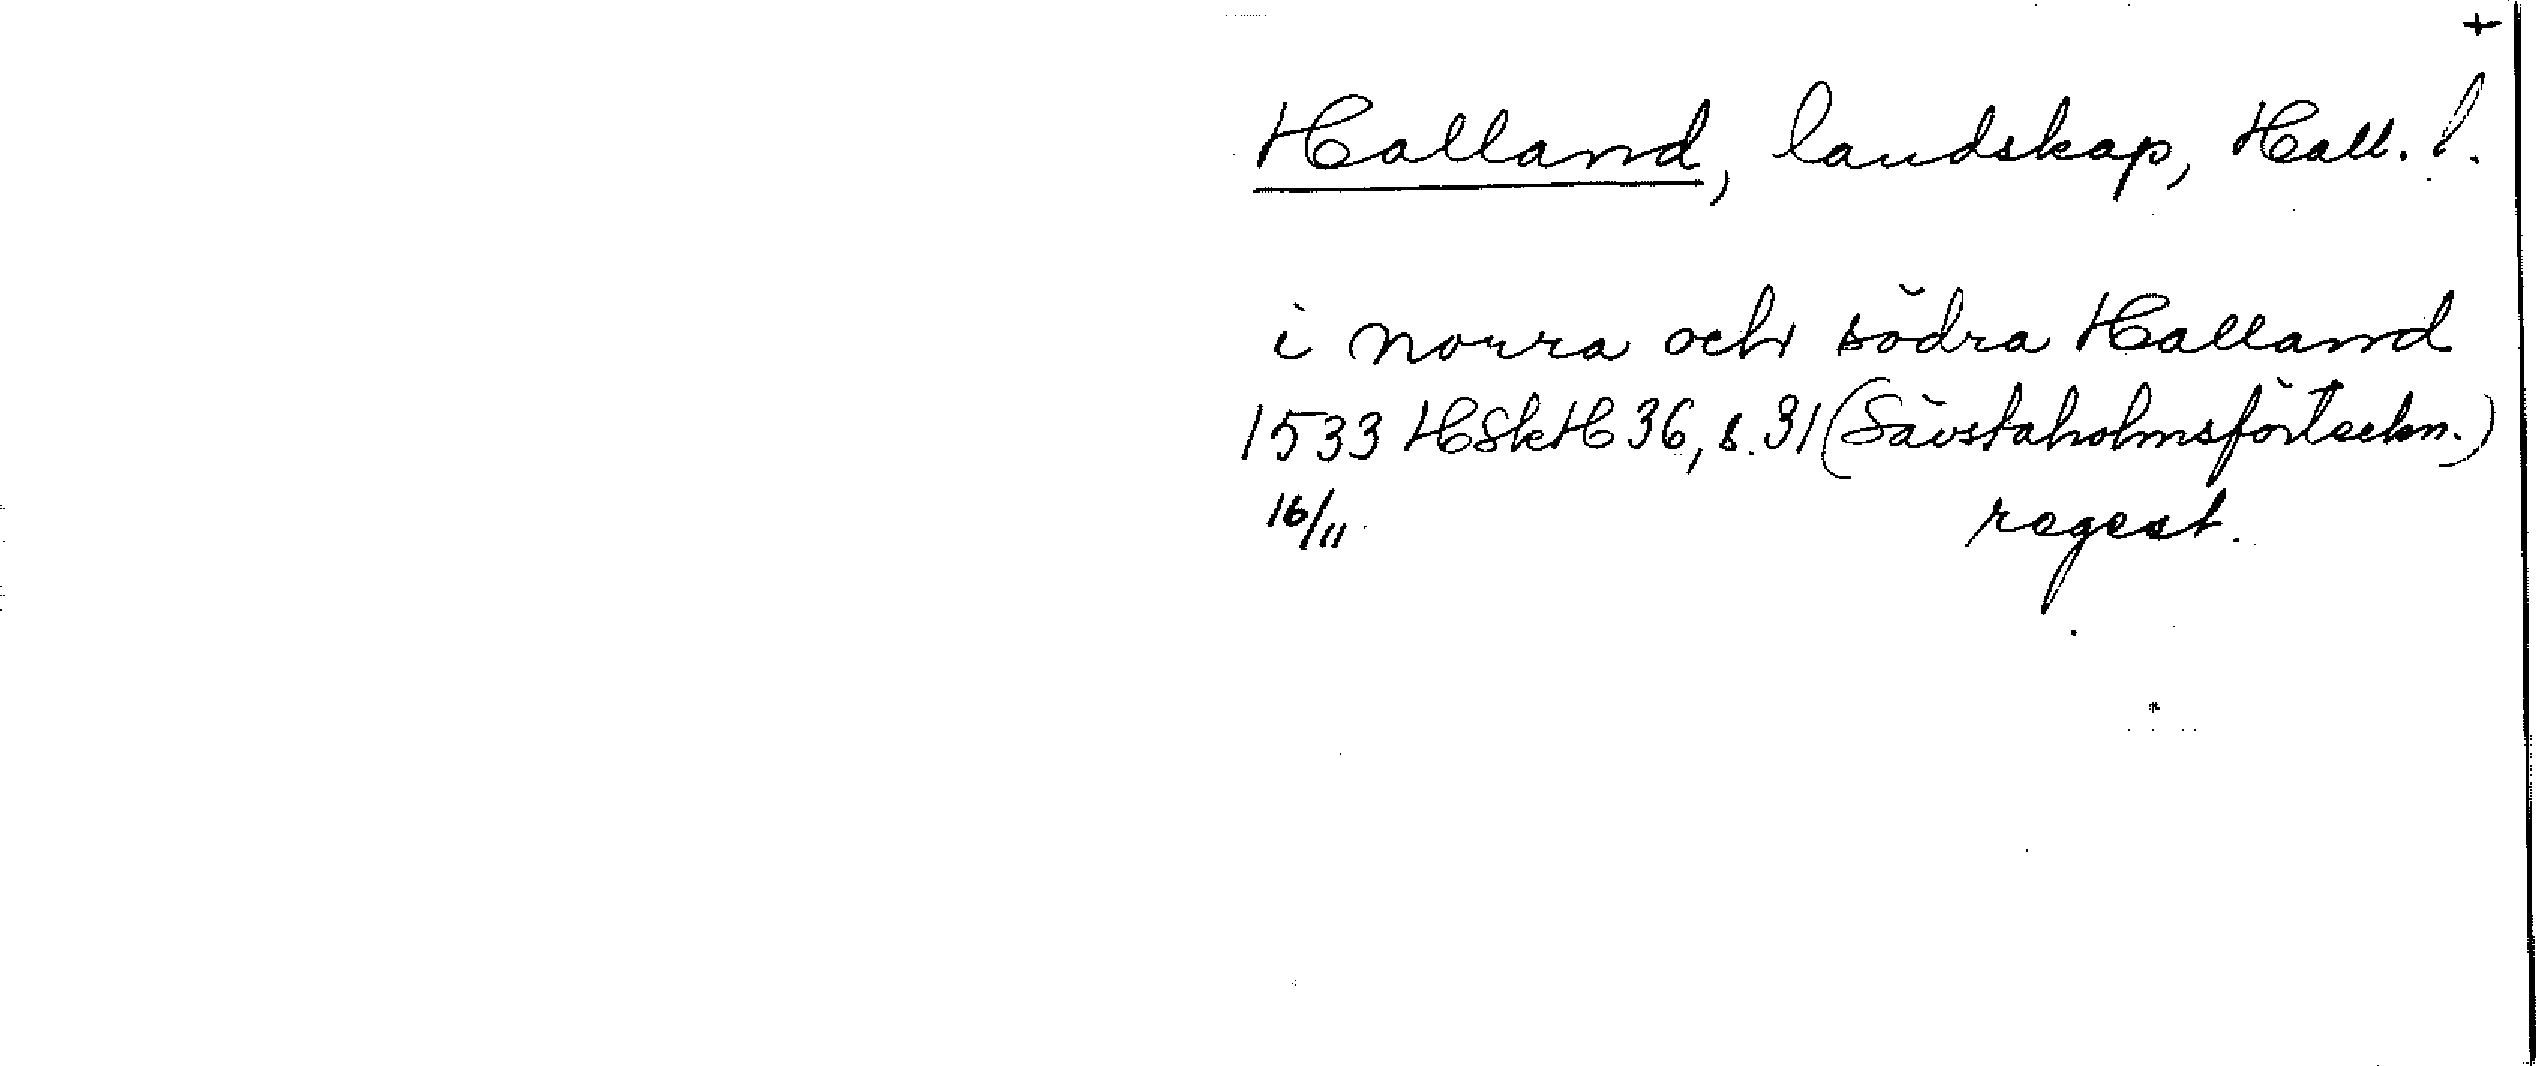 +
Halland, landskap, Hall. l.
i norra och södra Halland
1533 HSkH 36, s. 31 (Sävstaholmsförteckn.)
16/11 regest.